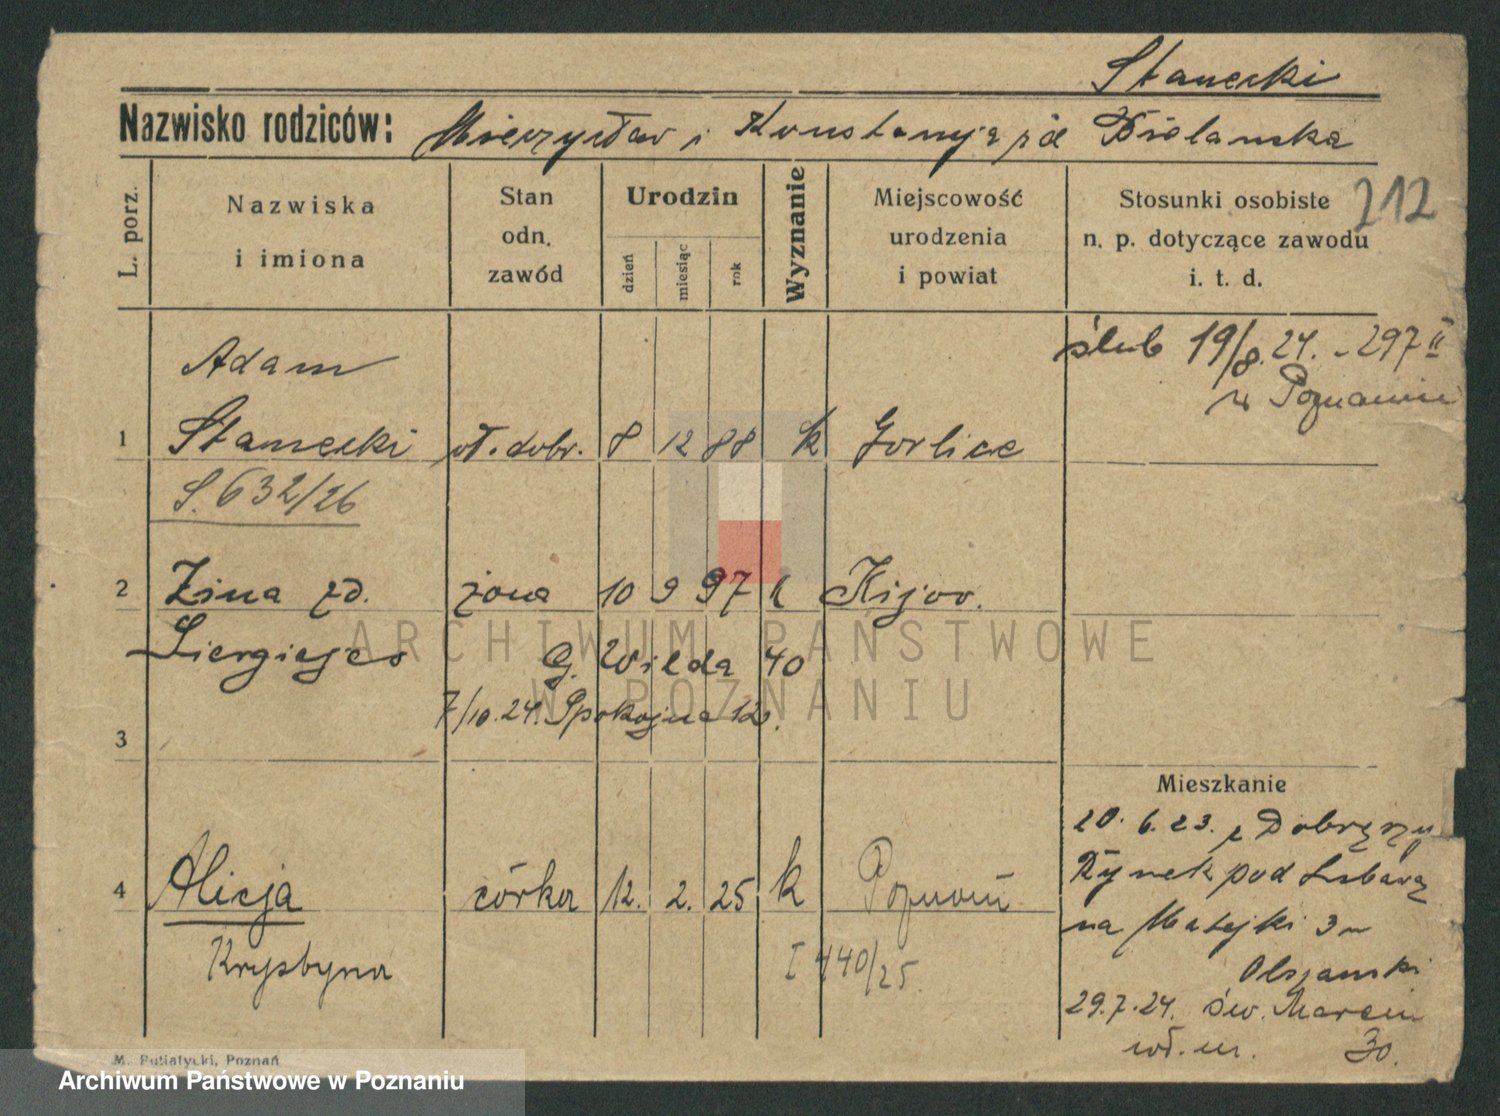 Stanecki
Nazwisko rodziców: Mieczysław i Konstancja zd Bielańska
212
L. porz.
Nazwiska i imiona
Stan odn. zawód
Urodzin
dzień
miesiąc
rok
Wyznanie
Miejscowość urodzenia i powiat
Stosunki osobiste n. p. dotyczące zawodu i. t. d.
ślub 19/8.24. - 297 II
w Poznaniu
Adam
1 Stanecki wł. dobr. 8 12 88 k Gorlice
S. 632/26
2 Zina zd. żona 10 9 97 k Kijow.
Siergiejew G. Wilda 40
7/10.24. Spokojna 12
3
Mieszkanie
20. 6. 23. z
Rynek pod
na Matejki 3
Olszanski
29.7.24. św. Marcin
wł. m. 30.
4 Alicja córka 12. 2. 25 k Poznań
Krystyna I 440/25.
ARCHIWUM PAŃSTWOWE
W POZNANIU
M. Putiatycki, Poznań
Archiwum Państwowe w Poznaniu